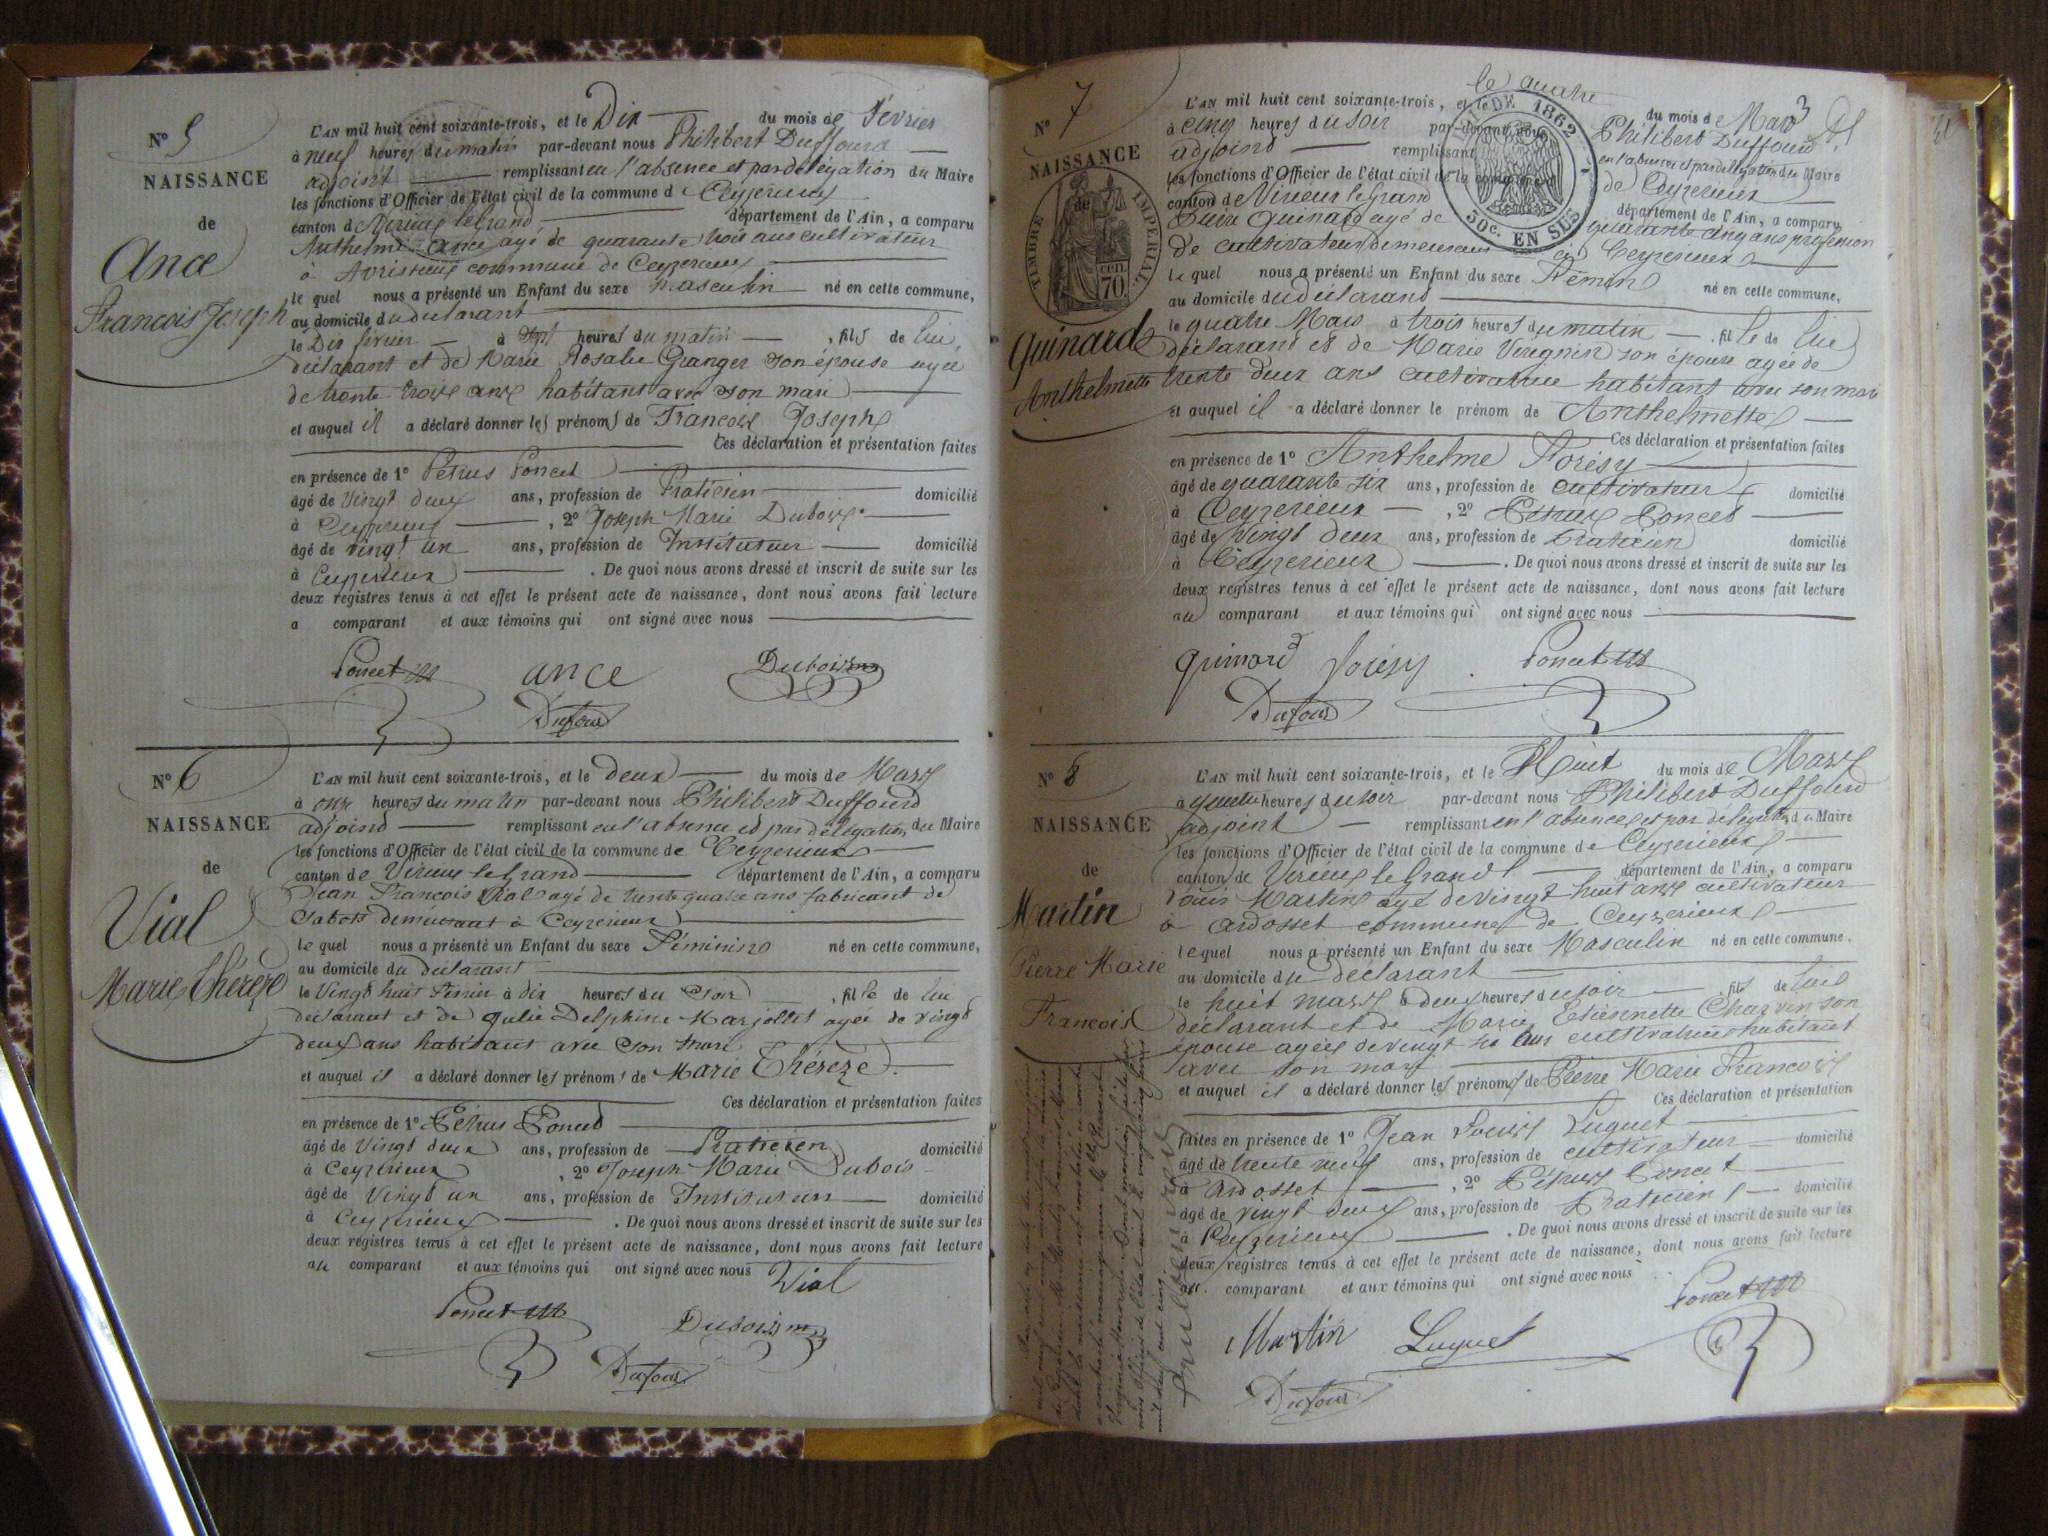 Nº 5
NAISSANCE
de
Ance
François Joseph
L'AN mil huit cent soixante-trois, et le Dix du mois de Février
à neuf heures du matin par-devant nous Philibert Duffourd
adjoint remplissant en l'absence et par délégation du Maire
les fonctions d'Officier de l'état civil de la commune d Ceyzerieux
canton de Virieux le Grand département de l'Ain, a comparu
Anthelme Ance agé de quarante trois ans cultivateur
à Avrissieux commune de Ceyzerieux
le quel nous a présenté un Enfant du sexe masculin né en cette commune,
au domicile du déclarant
le Dix février à sept heures du matin, fils de lui,
déclarant et de Marie Rosalie Granger son épouse agée
de trente trois ans habitant avec son mari
et auquel il a déclaré donner les prénoms de François Joseph
Ces déclaration et présentation faites
en présence de 1º Pétrus Poncet
âgé de vingt deux ans, profession de Praticien domicilié
à Ceyzerieux, 2º Joseph Marie Dubois
âgé de vingt un ans, profession de Instituteur domicilié
à Ceyzerieux. De quoi nous avons dressé et inscrit de suite sur les
deux registres tenus à cet effet le présent acte de naissance, dont nous avons fait lecture
a comparant et aux témoins qui ont signé avec nous
Poncet ance Dubois
Dufour
Nº 6
NAISSANCE
de
Vial
Marie Thérèze
L'AN mil huit cent soixante-trois, et le deux du mois de Mars
à onze heures du matin par-devant nous Philibert Duffourd
adjoind remplissant en l'absence et par délégation du Maire
les fonctions d'Officier de l'état civil de la commune de Ceyzerieux
canton de Virieux le Grand département de l'Ain, a comparu
Jean François Vial agé de trente quatre ans fabricant de
Sabots demeurant à Ceyzerieux
le quel nous a présenté un Enfant du sexe Féminin né en cette commune,
au domicile du déclarant
le vingt huit Février à dix heures du soir, fille de lui
déclarant et de Julie Delphine Marjollet agée de vingt
deux ans habitant avec son mari
et auquel il a déclaré donner les prénoms de Marie Thérèze.
Ces déclaration et présentation faites
en présence de 1º Pétrus Poncet
âgé de vingt deux ans, profession de Praticien domicilié
à Ceyzérieux, 2º Joseph Marie Dubois
âgé de vingt un ans, profession de Instituteur domicilié
à Ceyzérieux. De quoi nous avons dressé et inscrit de suite sur les
deux registres tenus à cet effet le présent acte de naissance, dont nous avons fait lecture
au comparant et aux témoins qui ont signé avec nous Vial
Poncet Dubois
Dufour
3
Nº 7
NAISSANCE
de
TIMBRE IMPÉRIAL
70 cen
DE 1862
50c. EN SUS
Guinard
Anthelmette
le quatre
L'AN mil huit cent soixante-trois, et le du mois de Mars
à cinq heures du soir par-devant nous Philibert Duffourd
adjoint remplissant en l'absence et par délégation du Maire
les fonctions d'Officier de l'état civil de la commune de Ceyzerieux
canton de Virieux le Grand département de l'Ain, a comparu
Guinard agé de quarante cinq ans profession
de cultivateur demeurant à Ceyzerieux
le quel nous a présenté un Enfant du sexe Fémin né en cette commune,
au domicile du déclarand
le quatre Mars à trois heures du matin, fille de lui
déclarant et de Marie son épouse agée de
trente deux ans cultivatrice habitant avec son mari
et auquel il a déclaré donner le prénom de Anthelmette
Ces déclaration et présentation faites
en présence de 1º Anthelme
âgé de quarante six ans, profession de cultivateur domicilié
à Ceyzerieux, 2º Pétrus Poncet
âgé de vingt deux ans, profession de Praticien domicilié
à Ceyzerieux. De quoi nous avons dressé et inscrit de suite sur les
deux registres tenus à cet effet le présent acte de naissance, dont nous avons fait lecture
au comparant et aux témoins qui ont signé avec nous
guinard Poncet
Dufour
Nº 8
NAISSANCE
de
Martin
Pierre Marie
François
L'AN mil huit cent soixante-trois, et le Huit du mois de Mars
à quatre heures du soir par-devant nous Philibert Duffourd
adjoint remplissant en l'absence et par délégation du Maire
les fonctions d'Officier de l'état civil de la commune de Ceyzerieux
canton de Virieux le Grand département de l'Ain, a comparu
Louis Martin agé de vingt huit ans cultivateur
à Ardosset commune de Ceyzerieux
le quel nous a présenté un Enfant du sexe Masculin né en cette commune,
au domicile du déclarant
le huit mars à deux heures du soir, fils de lui
déclarant et de Marie Etiennette Charvin son
épouse agée de vingt six ans cultivatrice habitant
avec son mari
et auquel il a déclaré donner les prénoms de Pierre Marie François
Ces déclaration et présentation
faites en présence de 1º Jean Louis Luguet
âgé de trente neuf ans, profession de cultivateur domicilié
à Ardosset, 2º Pétrus Poncet
âgé de vingt deux ans, profession de Praticien domicilié
à Ceyzérieux. De quoi nous avons dressé et inscrit de suite sur les
deux registres tenus à cet effet le présent acte de naissance, dont nous avons fait lecture
au comparant et aux témoins qui ont signé avec nous
Martin Luguet Poncet
Dufour